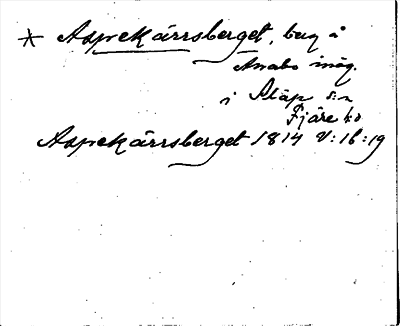 * Aspekärrsberget, berg å
Anabo inäg.
i Släp s:n
Fjäre hd
Aspekärrsberget 1814 V:16:19